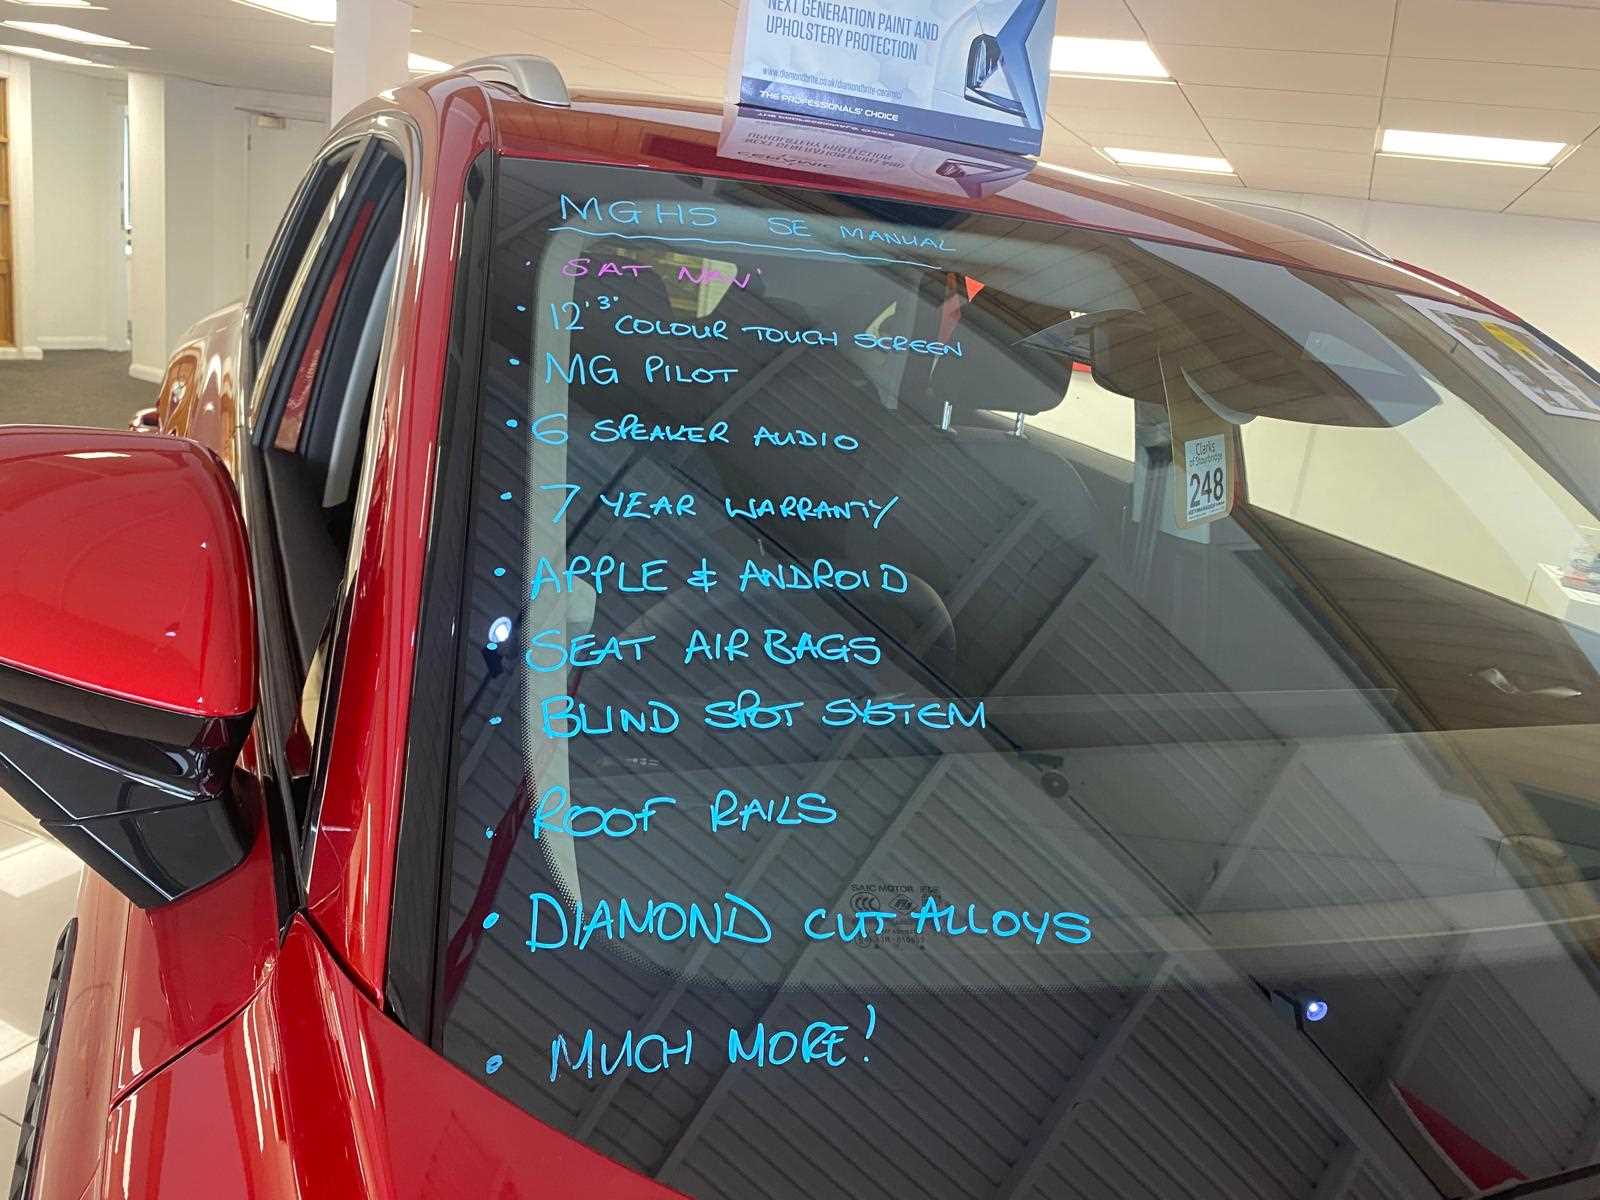 NEXT GENERATION PAINT AND
UPHOLSTERY PROTECTION
www.diamondbrite.co.uk/diamondbrite-ceramic/
THE PROFESSIONALS' CHOICE
MG HS SE MANUAL
• SAT NAV
• 12'3" COLOUR TOUCH SCREEN
• MG PILOT
• 6 SPEAKER AUDIO
• 7 YEAR WARRANTY
• APPLE & ANDROID
• SEAT AIR BAGS
• BLIND SPOT SYSTEM
• ROOF RAILS
• DIAMOND CUT ALLOYS
• MUCH MORE!
Clarks
of Stourbridge
248
SAIC MOTOR
CCC